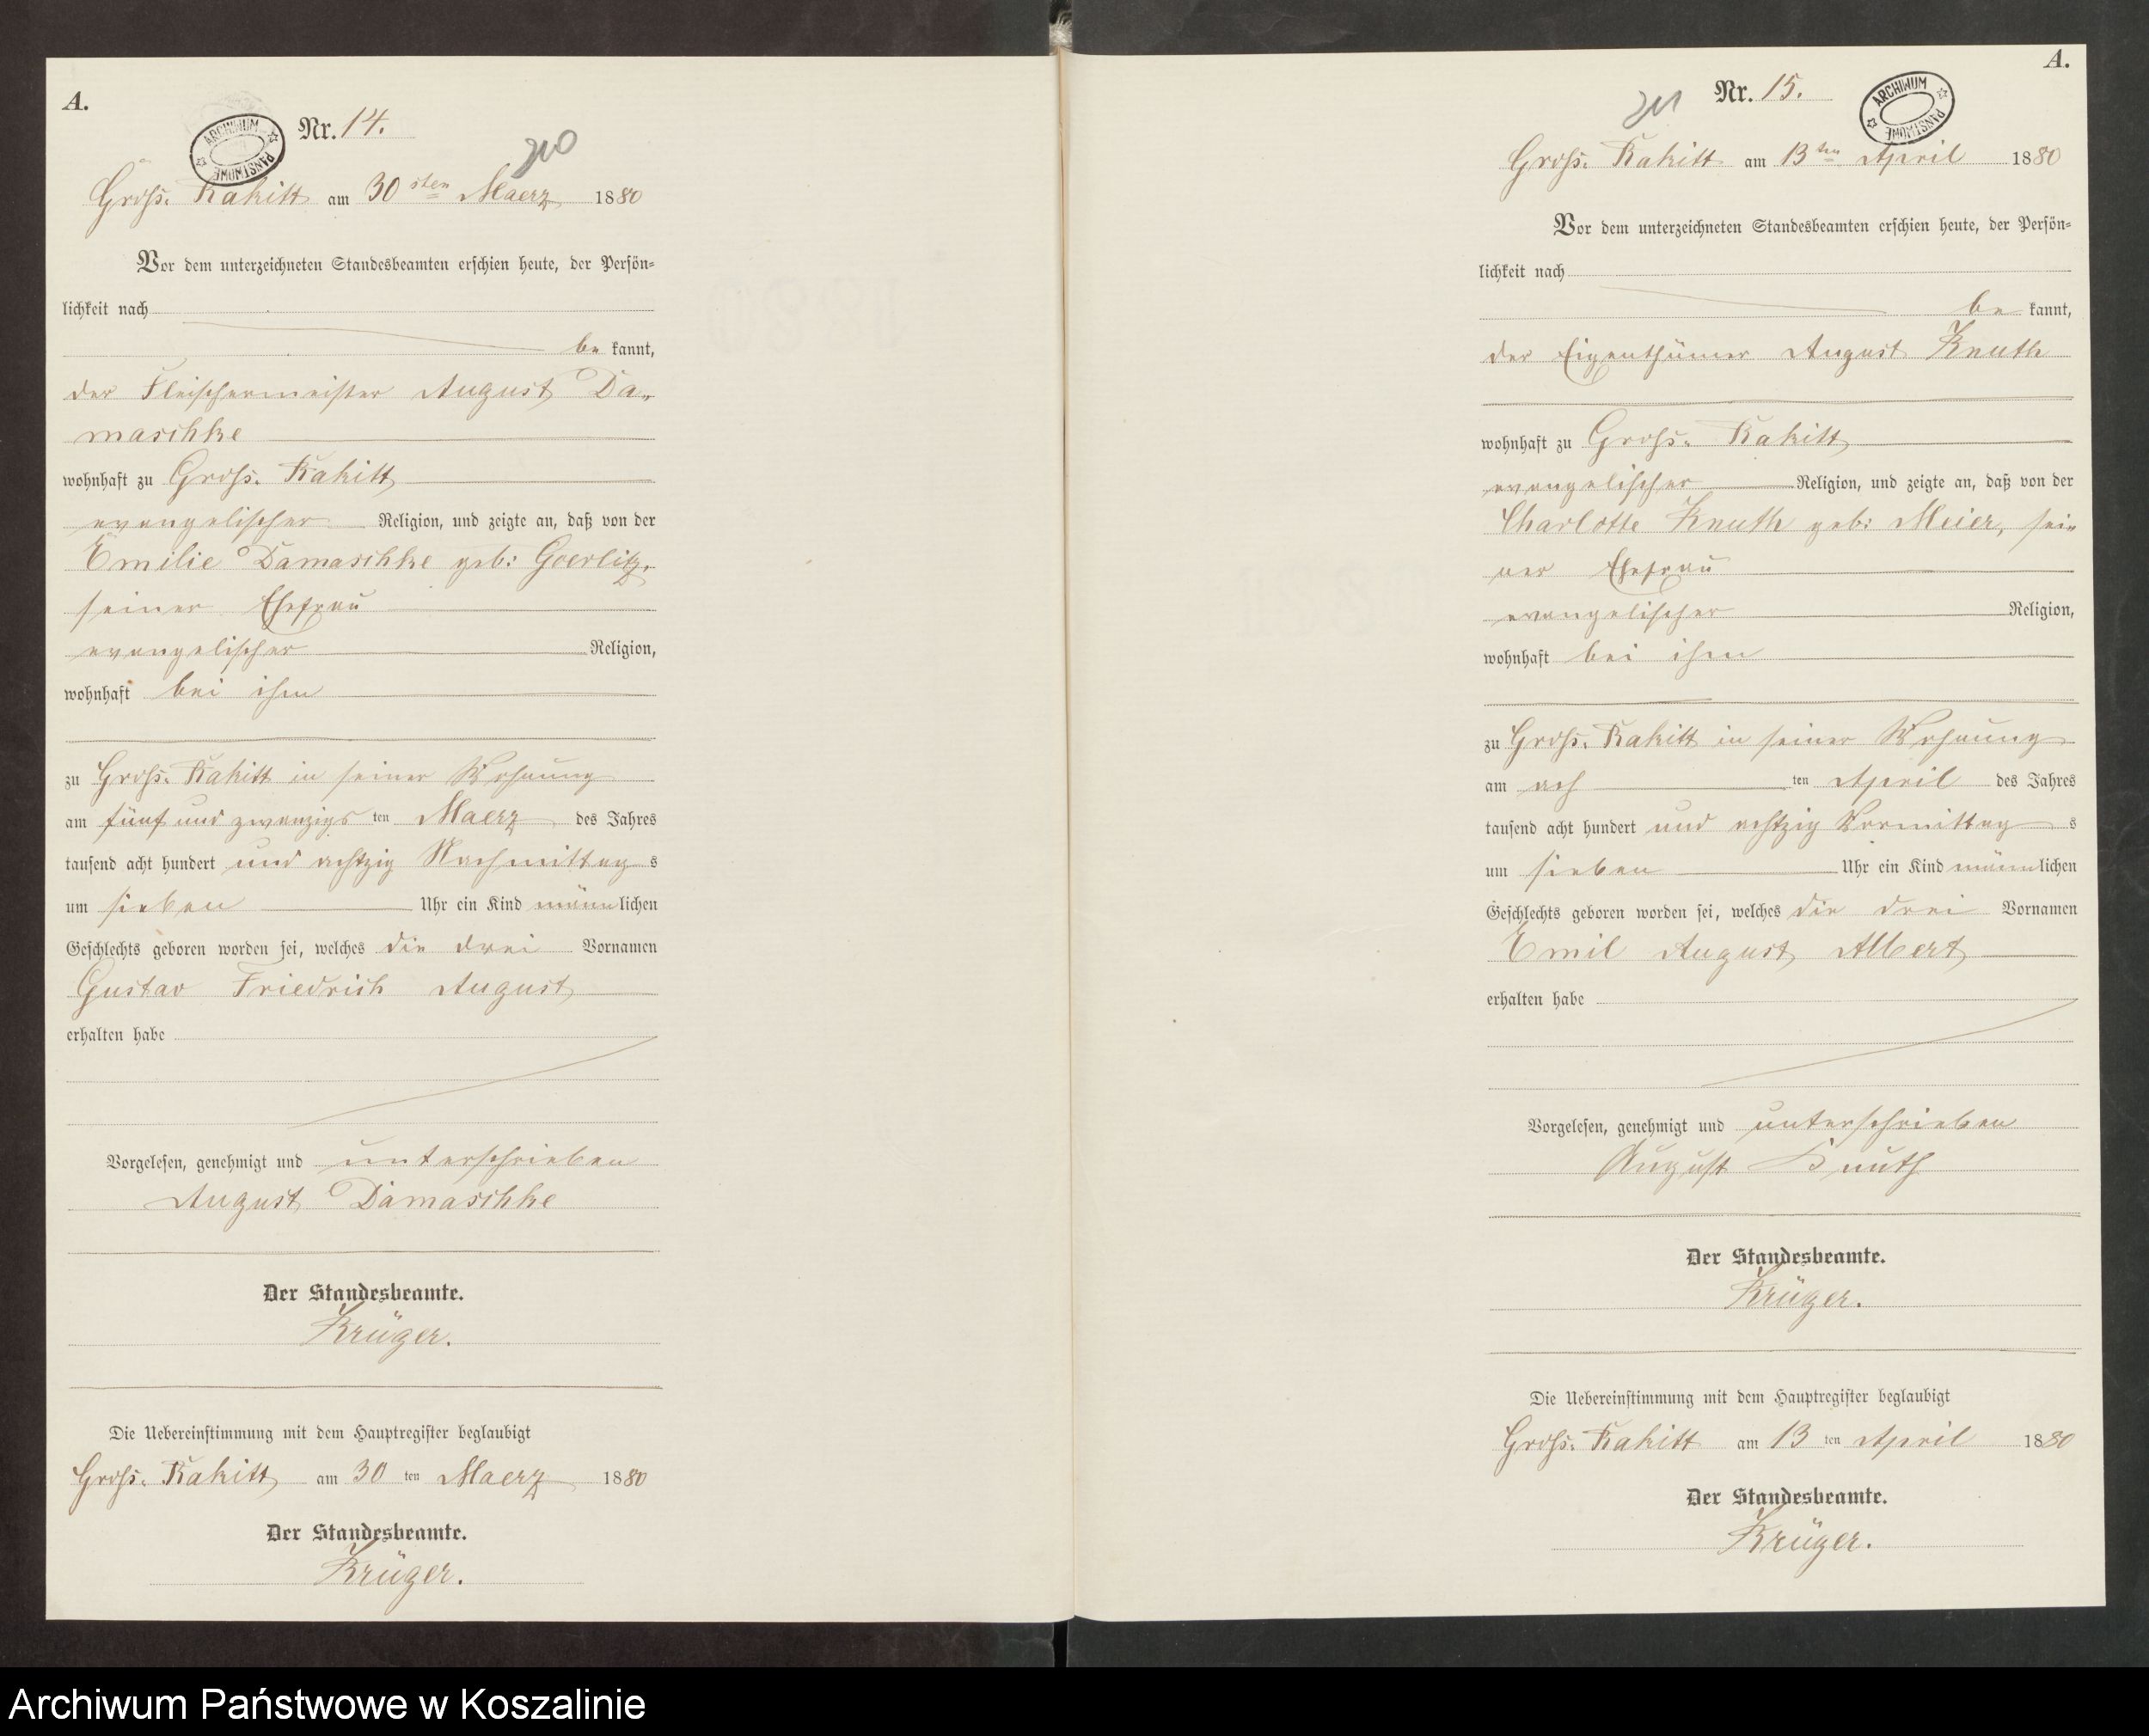 A.
ARCHIWUM PAŃSTWOWE
Nr. 14.
210
Gross. Rakitt am 30 sten Maerz 1880
Vor dem unterzeichneten Standesbeamten erschien heute, der Persön=
lichkeit nach
be kannt,
der Fleischermeister August Da„
maschke
wohnhaft zu Gross. Rakitt
evangelischer Religion, und zeigte an, daß von der
Emilie Damaschke geb: Goerlitz,
seiner Ehefrau
evangelischer Religion,
wohnhaft bei ihm
zu Gross. Rakitt in seiner Wohnung
am fünf und zwanzigs ten Maerz des Jahres
tausend acht hundert und achtzig Nachmittag s
um sieben Uhr ein Kind männlichen
Geschlechts geboren worden sei, welches die drei Vornamen
Gustav Friedrich August
erhalten habe
Vorgelesen, genehmigt und unterschrieben
August Damaschke
Der Standesbeamte.
Krüger.
Die Uebereinstimmung mit dem Hauptregister beglaubigt
Gross. Rakitt am 30 ten Maerz 1880
Der Standesbeamte.
Krüger.
A.
Nr. 15.
211
ARCHIWUM PAŃSTWOWE
Gross. Rakitt am 13 ten April 1880
Vor dem unterzeichneten Standesbeamten erschien heute, der Persön=
lichkeit nach
be kannt,
der Eigenthümer August Knuth
wohnhaft zu Gross. Rakitt
evangelischer Religion, und zeigte an, daß von der
Charlotte Knuth geb: Meier, sei„
ner Ehefrau
evangelischer Religion,
wohnhaft bei ihm
zu Gross. Rakitt in seiner Wohnung
am ach ten April des Jahres
tausend acht hundert und achtzig Vormittag s
um sieben Uhr ein Kind männlichen
Geschlechts geboren worden sei, welches die drei Vornamen
Emil August Albert
erhalten habe
Vorgelesen, genehmigt und unterschrieben
August Knuth
Der Standesbeamte.
Krüger.
Die Uebereinstimmung mit dem Hauptregister beglaubigt
Gross. Rakitt am 13 ten April 1880
Der Standesbeamte.
Krüger.
Archiwum Państwowe w Koszalinie